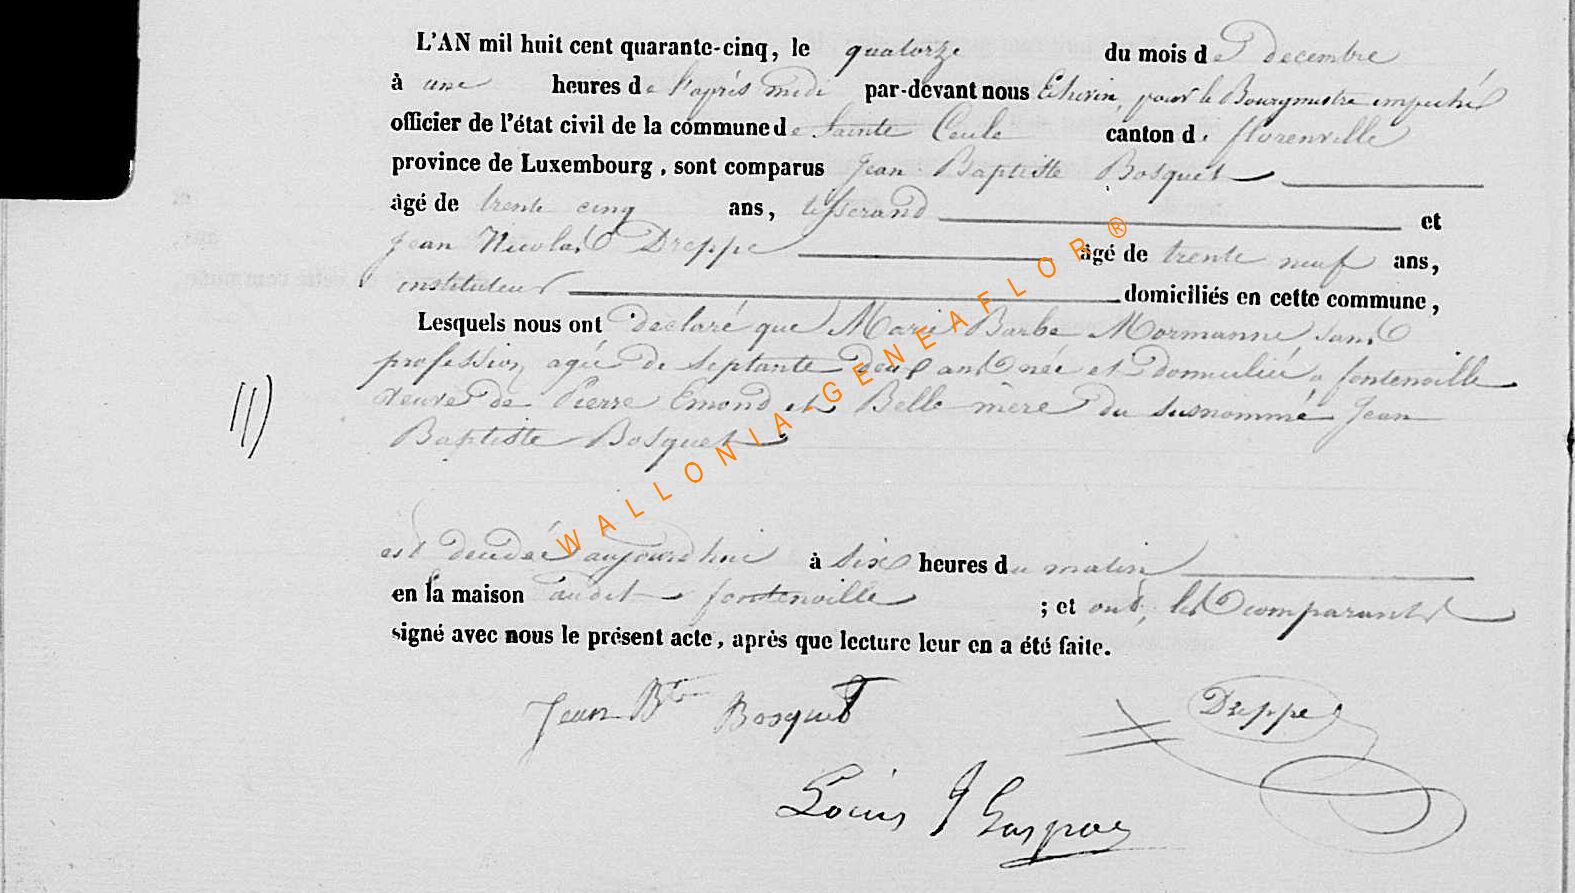 L'AN mil huit cent quarante-cinq, le quatorze du mois de decembre
à une heures de l'après midi par-devant nous Echevin, pour le Bourgmestre empeché
officier de l'état civil de la commune de Sainte Cecile canton de florenville
province de Luxembourg, sont comparus Jean Baptiste Bosquet
âgé de trente cinq ans, tisserand et
Jean Nicolas Dreppe âgé de trente neuf ans,
instituteur domiciliés en cette commune,
Lesquels nous ont declaré que Marie Barbe Mormanne sans
profession, agée de septante deux ans née et domiciliée a fontenoille
veuve de Pierre Emond et Belle mère du susnommé Jean
11)
Baptiste Bosquet
est decedée aujourd'hui à six heures du matin
en la maison audit fontenoille ; et ont les comparants
signé avec nous le présent acte, après que lecture leur en a été faite.
Jean Bte Bosquet
Dreppe
Louis J Gaspar
WALLONIA-GENEAFLOR®